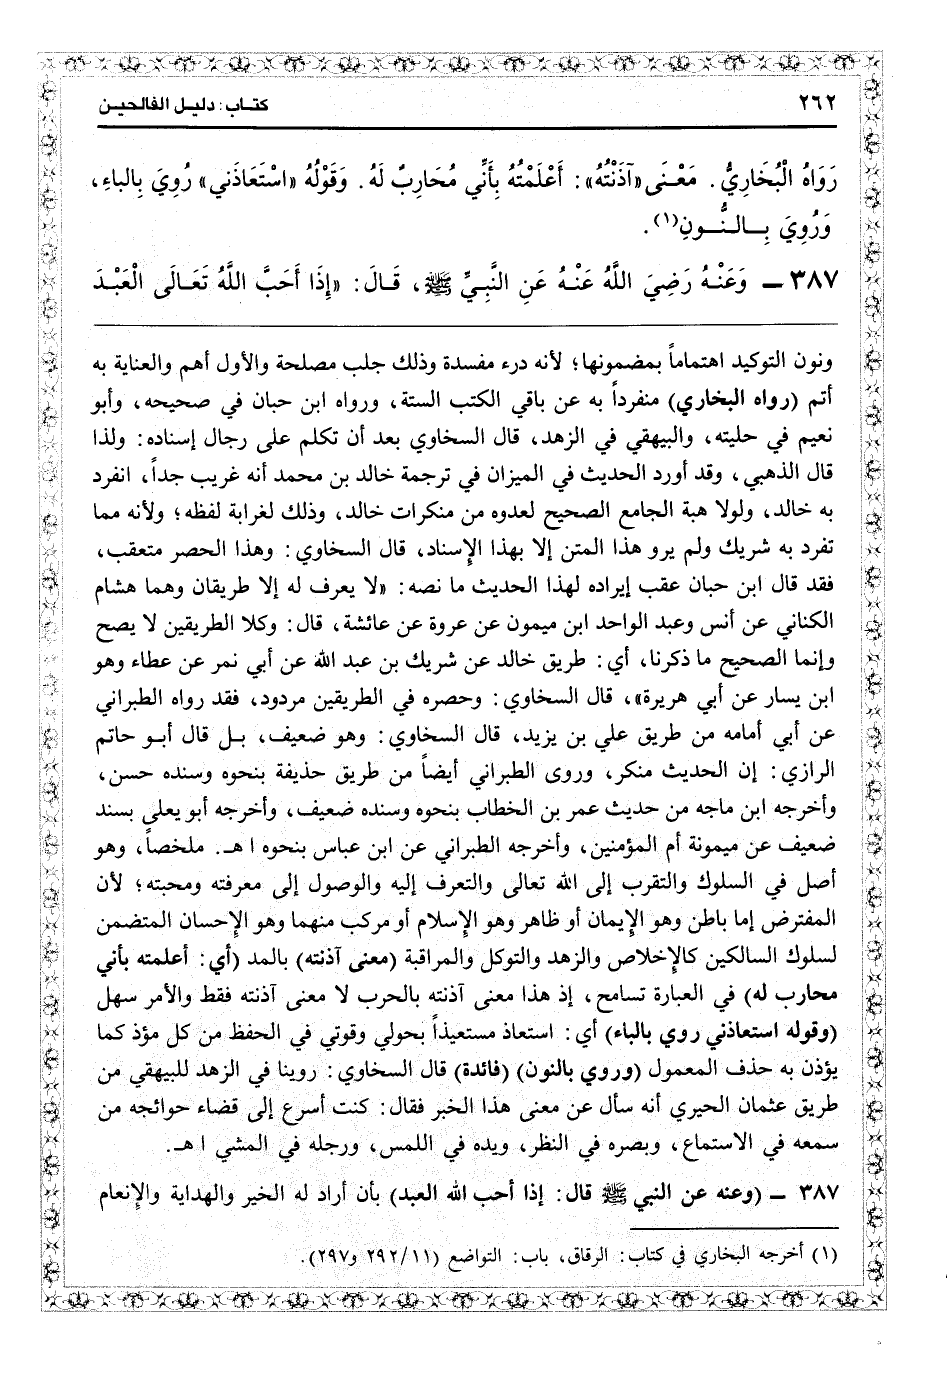 ٢٦٢ كتاب: دليل الفالحين
رَوَاهُ الْبُخَارِيُّ. مَعْنَى «آذَنْتُهُ»: أَعْلَمْتُهُ بِأَنِّي مُحَارِبٌ لَهُ. وَقَوْلُهُ «اسْتَعَاذَنِي» رُوِيَ بِالباءِ،
وَرُوِيَ بِالنُّونِ(١).
٣٨٧ ـ وَعَنْهُ رَضِيَ اللَّهُ عَنْهُ عَنِ النَّبِيِّ ﷺ، قَالَ: «إِذَا أَحَبَّ اللَّهُ تَعَالَى الْعَبْدَ
ونون التوكيد اهتماماً بمضمونها؛ لأنه درء مفسدة وذلك جلب مصلحة والأول أهم والعناية به
أتم (رواه البخاري) منفرداً به عن باقي الكتب الستة، ورواه ابن حبان في صحيحه، وأبو
نعيم في حليته، والبيهقي في الزهد، قال السخاوي بعد أن تكلم على رجال إسناده: ولذا
قال الذهبي، وقد أورد الحديث في الميزان في ترجمة خالد بن محمد أنه غريب جداً، انفرد
به خالد، ولولا هبة الجامع الصحيح لعدوه من منكرات خالد، وذلك لغرابة لفظه؛ ولأنه مما
تفرد به شريك ولم يرو هذا المتن إلا بهذا الإسناد، قال السخاوي: وهذا الحصر متعقب،
فقد قال ابن حبان عقب إيراده لهذا الحديث ما نصه: «لا يعرف له إلا طريقان وهما هشام
الكناني عن أنس وعبد الواحد ابن ميمون عن عروة عن عائشة، قال: وكلا الطريقين لا يصح
وإنما الصحيح ما ذكرنا، أي: طريق خالد عن شريك بن عبد الله عن أبي نمر عن عطاء وهو
ابن يسار عن أبي هريرة»، قال السخاوي: وحصره في الطريقين مردود، فقد رواه الطبراني
عن أبي أمامه من طريق علي بن يزيد، قال السخاوي: وهو ضعيف، بل قال أبو حاتم
الرازي: إن الحديث منكر، وروى الطبراني أيضاً من طريق حذيفة بنحوه وسنده حسن،
وأخرجه ابن ماجه من حديث عمر بن الخطاب بنحوه وسنده ضعيف، وأخرجه أبو يعلى بسند
ضعيف عن ميمونة أم المؤمنين، وأخرجه الطبراني عن ابن عباس بنحوه ا هـ. ملخصاً، وهو
أصل في السلوك والتقرب إلى الله تعالى والتعرف إليه والوصول إلى معرفته ومحبته؛ لأن
المفترض إما باطن وهو الإيمان أو ظاهر وهو الإسلام أو مركب منهما وهو الإحسان المتضمن
لسلوك السالكين كالإخلاص والزهد والتوكل والمراقبة (معنى آذنته) بالمد (أي: أعلمته بأني
محارب له) في العبارة تسامح، إذ هذا معنى آذنته بالحرب لا معنى آذنته فقط والأمر سهل
(وقوله استعاذني روي بالباء) أي: استعاذ مستعيذاً بحولي وقوتي في الحفظ من كل مؤذ كما
يؤذن به حذف المعمول (وروي بالنون) (فائدة) قال السخاوي: روينا في الزهد للبيهقي من
طريق عثمان الحيري أنه سأل عن معنى هذا الخبر فقال: كنت أسرع إلى قضاء حوائجه من
سمعه في الاستماع، وبصره في النظر، ويده في اللمس، ورجله في المشي ا هـ.
٣٨٧ ـ (وعنه عن النبي ﷺ قال: إذا أحب الله العبد) بأن أراد له الخير والهداية والإنعام
(١) أخرجه البخاري في كتاب: الرقاق، باب: التواضع (٢٩٢/١١ و٢٩٧).